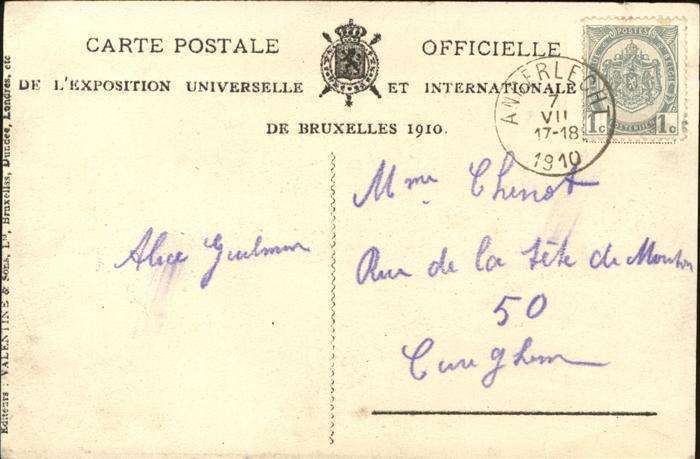 CARTE POSTALE OFFICIELLE
DE L'EXPOSITION UNIVERSELLE ET INTERNATIONALE
DE BRUXELLES 1910.
POSTES
1c 1c
ANDERLECHT
7
VII
17-18
1910
Mme Chenot
Rue de la tête de Mouton
50
Cureghem
Alice
Editeurs : VALENTINE & SONS, Ld, Bruxelles, Dundee, Londres, etc